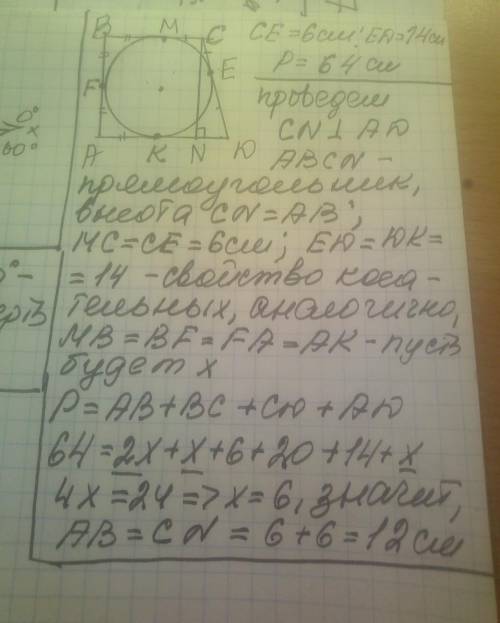 B M C
CE = 6см; ЕД = 14см
E
P = 64 см
F
A K N Д
0°
x
60°
проведем
CN ⊥ АД
ABCN -
прямоугольник,
высота CN = AB;
MC = CE = 6см; ЕД = ДК =
= 14 - свойство каса-
тельных, аналогично,
MB = BF = FA = AK - пусть
будет x
P = AB + BC + CД + AД
64 = 2x + x + 6 + 20 + 14 + x
4x = 24 => x = 6, значит,
AB = CN = 6 + 6 = 12 см